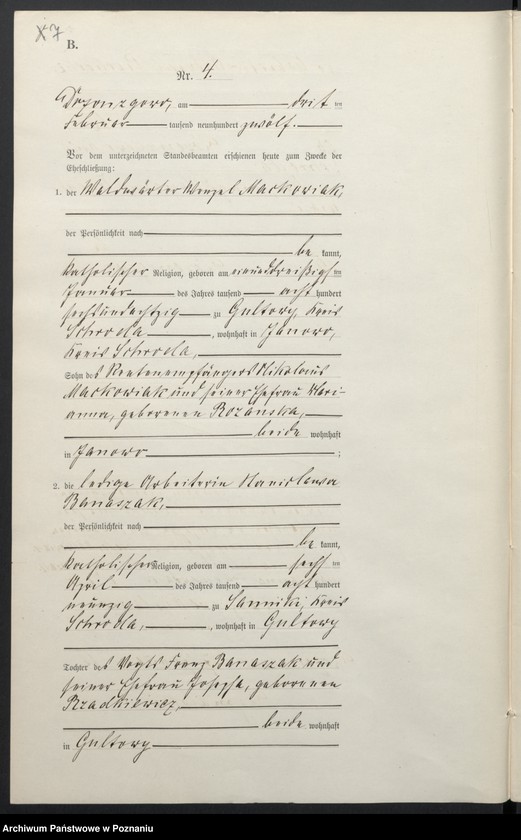 X7
B.
Nr. 4.
am drit ten
Februar tausend neunhundert zwölf.
Vor dem unterzeichneten Standesbeamten erschienen heute zum Zwecke der
Eheschließung:
1. der Waldwärter Wenzel Mackowiak,
der Persönlichkeit nach
be kannt,
katholischer Religion, geboren am einunddreißigsten
Januar des Jahres tausend acht hundert
sechsundachtzig zu Gultowy, Kreis
Schroda, wohnhaft in Janowo,
Kreis Schroda,
Sohn des Rentenempfängers Nikolaus
Mackowiak und seiner Ehefrau Mari-
anna, geborenen Rozanska,
beide wohnhaft
in Janowo ;
2. die ledige Arbeiterin Stanislawa
Banaszak,
der Persönlichkeit nach
be kannt,
katholischer Religion, geboren am sechs ten
April des Jahres tausend acht hundert
neunzig zu Sanniki, Kreis
Schroda, , wohnhaft in Gultowy
Tochter des Vogts Franz Banaszak und
seiner Ehefrau Josepha, geborenen
Rzadkiewicz,
beide wohnhaft
in Gultowy
Archiwum Państwowe w Poznaniu